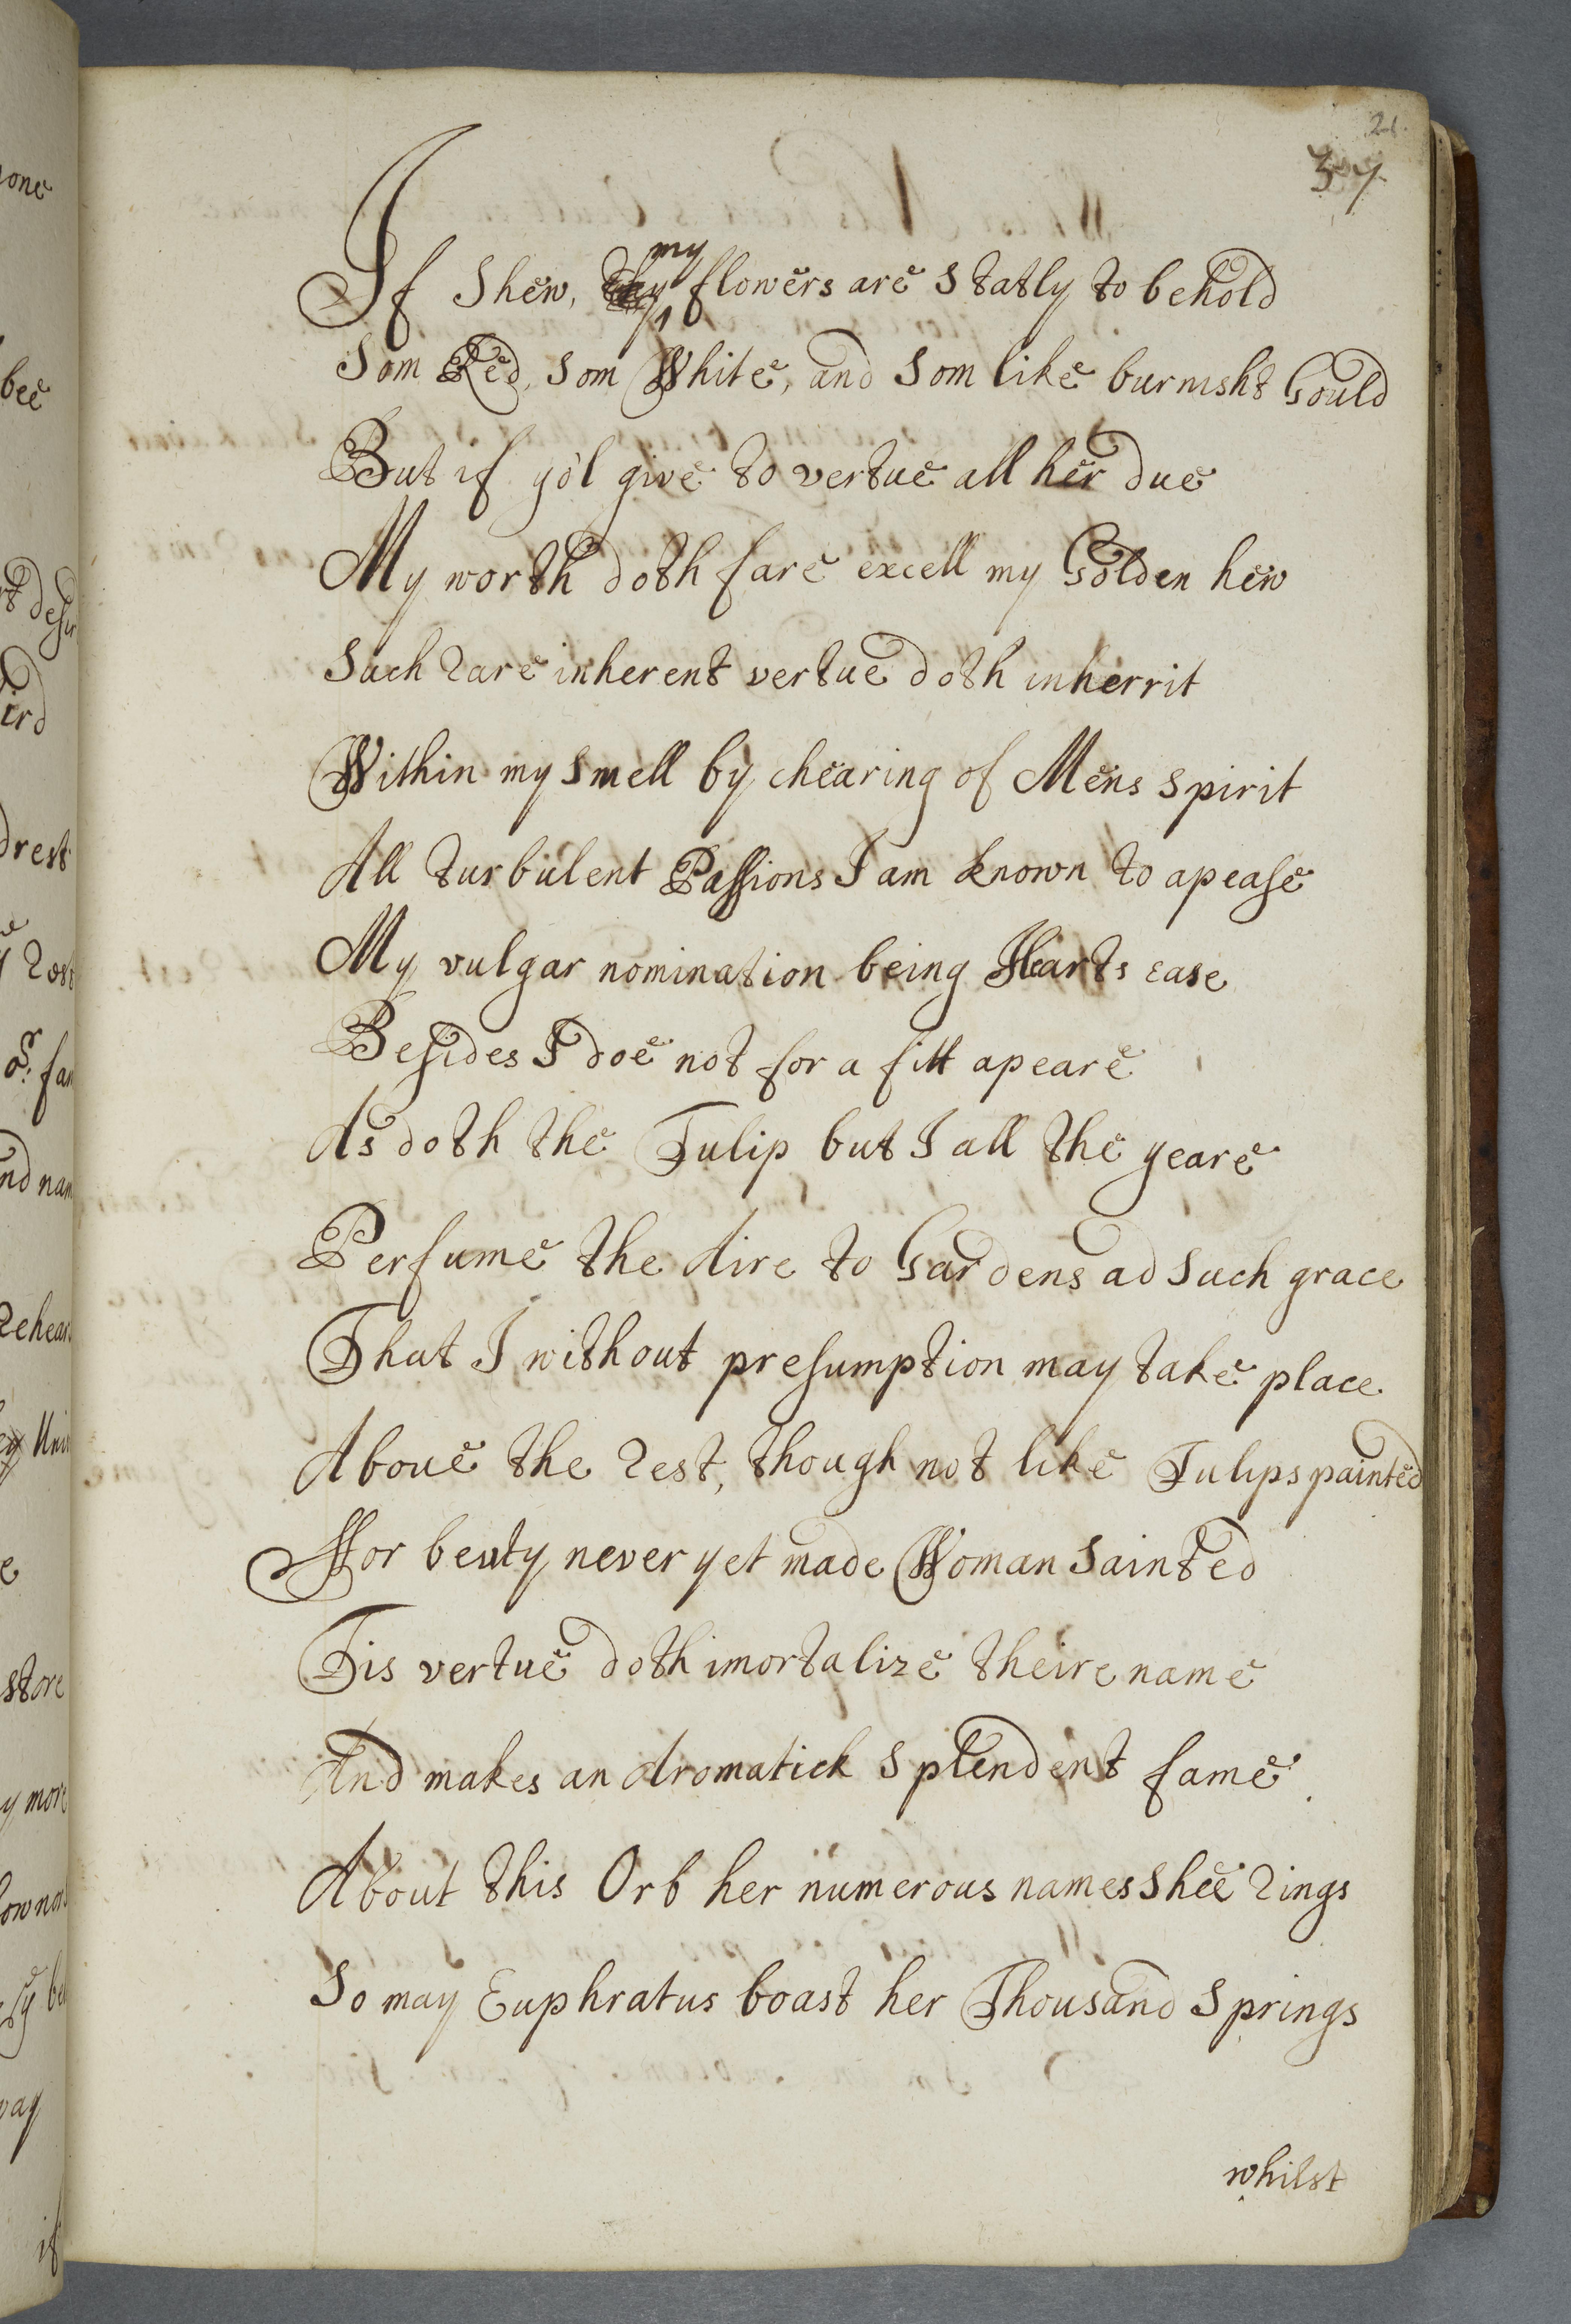 21.
37
If Shew, my flowers are Statly to behold
Som Red, Som White, and Som like burnisht Gould
But if yo'l give to vertue all her due
My worth doth fare excell my Golden hew
Such Rare inherent vertue doth inherrit
Within my Smell by chearing of Mens Spirit
All turbulent Passions I am known to apease
My vulgar nomination being Harts ease
Besides I doe not for a fitt apeare
As doth the Tulip but I all the yeare
Perfume the Aire to Gardens ad Such grace
That I without presumption may take place
Aboue the Rest, though not like Tulips painted
ffor beuty never yet made Woman Sainted
Tis vertue doth imortalize theire name
And makes an Aromatick Splendent fame
About this Orb her numerous names Shee Rings
So may Euphratus boast her Thousand Springs
whilst